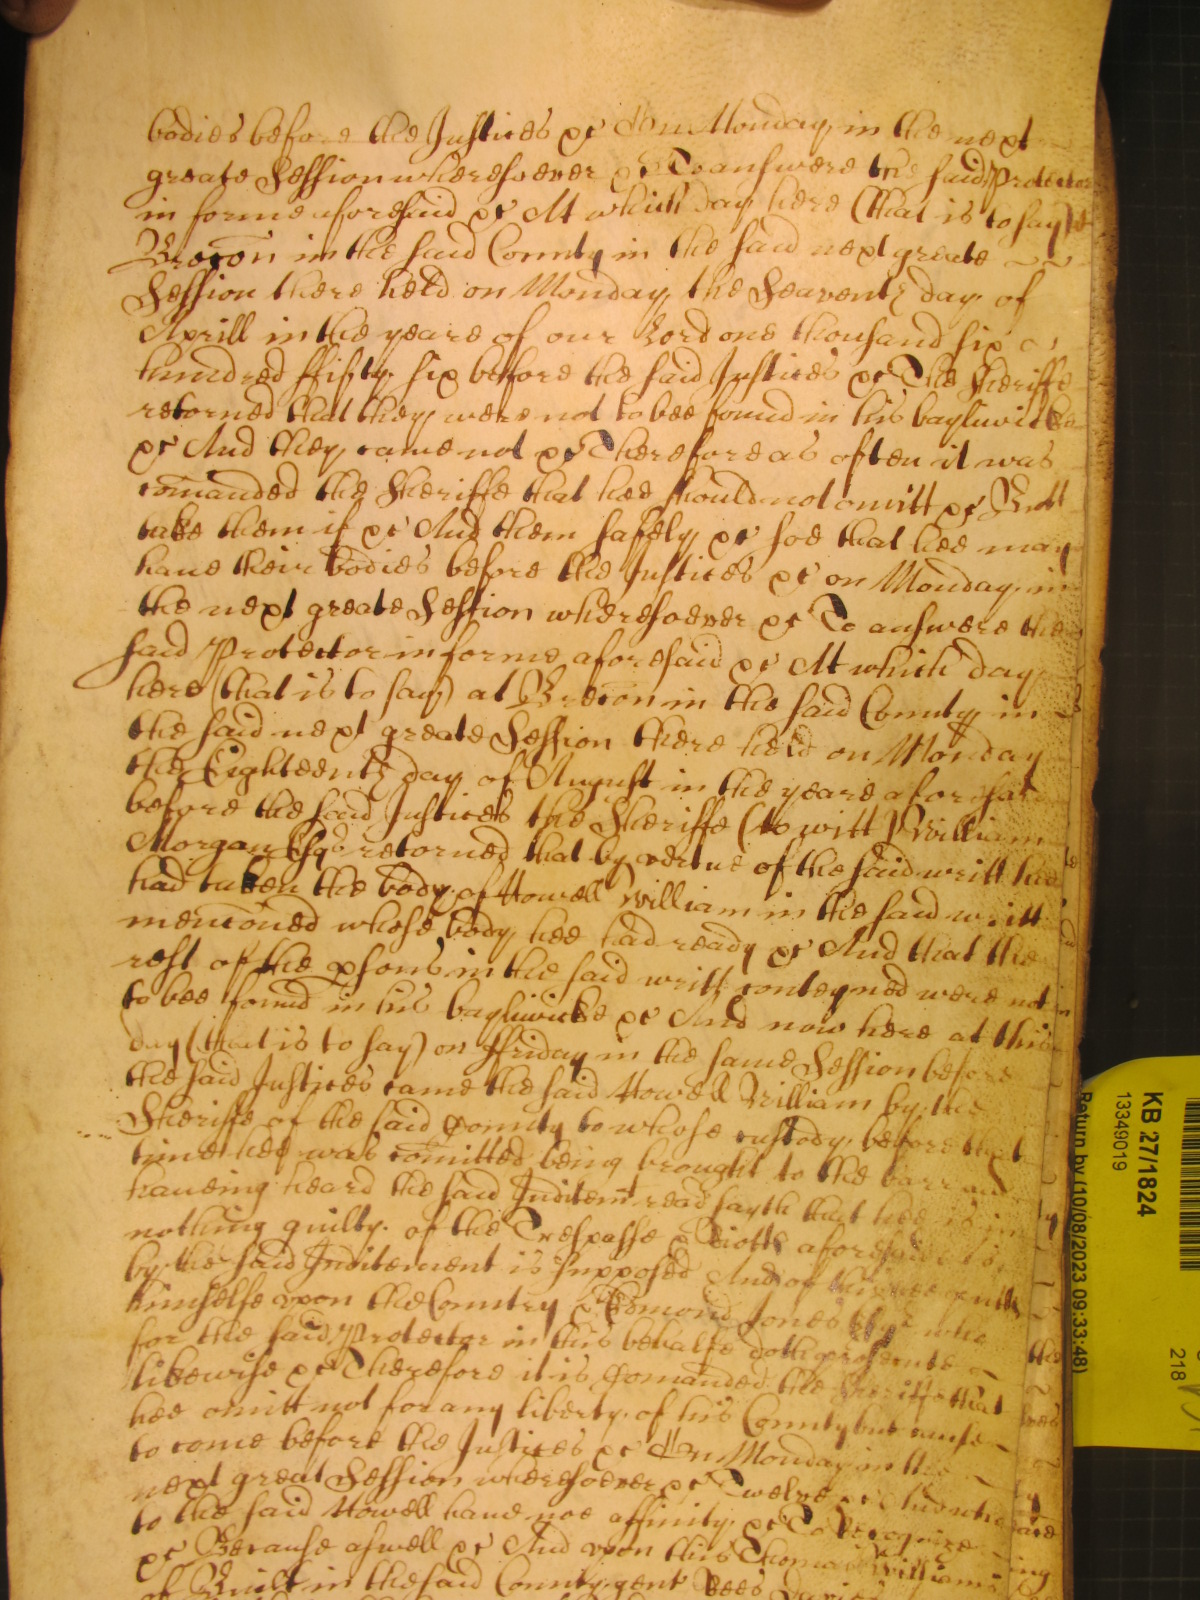 bodies before the Justices &c On Monday in the next
greate Session wheresoever &c To answere the said Protector
in forme aforesaid &c At which day here (that is to say) at
Brecon in the said County in the said next greate
Session there held on Monday the Seaventh day of
Aprill in the yeare of our Lord one thousand six
hundred ffifty six before the said Justices &c The Sheriffe
retorned that they were not to bee found in his bayliwicke
&c And they came not &c Therefore as often it was
comanded the Sheriffe that hee should not omitt &c Butt
take them if &c And them safely &c soe that hee may
have their bodies before the Justices &c on Monday in
the next greate Session wheresoever &c To answere the
said Protector in forme aforesaid &c At which day
here (that is to say) at Brecon in the said County in
the said next greate Session there held on Monday
the Eighteenth day of August in the yeare aforesaid
before the said Justices the Sheriffe (to witt) William
Morgan Esqr retorned that by vertue of the said writt hee
had taken the body of Howell William in the said writt
menconed whose body hee had ready &c And that the
rest of the psons in the said writt conteyned were not
to bee found in his bayliwicke &c And now here at this
day (that is to say) on ffriday in the same Session before
the said Justices came the said Howell William by the
Sheriffe of the said County to whose custody before that
time hee was comitted being brought to the barr and
haveing heard the said Inditemt read sayth that hee is in
nothing guilty of the Trespasse & Riotts aforesaid
by the said Inditement is supposed And of this hee putts
himselfe upon the Country & Edmond Jones Esqr who
for the said Protector in this behalfe doth prosecute
likewise &c Therefore it is Comanded the Sheriffe that
hee omitt not for any liberty of his County but cause
to come before the Justices &c On Monday in the
next great Session wheresoever &c Twelve &c
to the said Howell have noe affinity &c To Recognize
&c Because aswell &c And upon this Thomas Williams
of Built in the said County gent Rees Davies
KB 27/1824
13349019
Return by (10/08/2023 09:33:48)
218